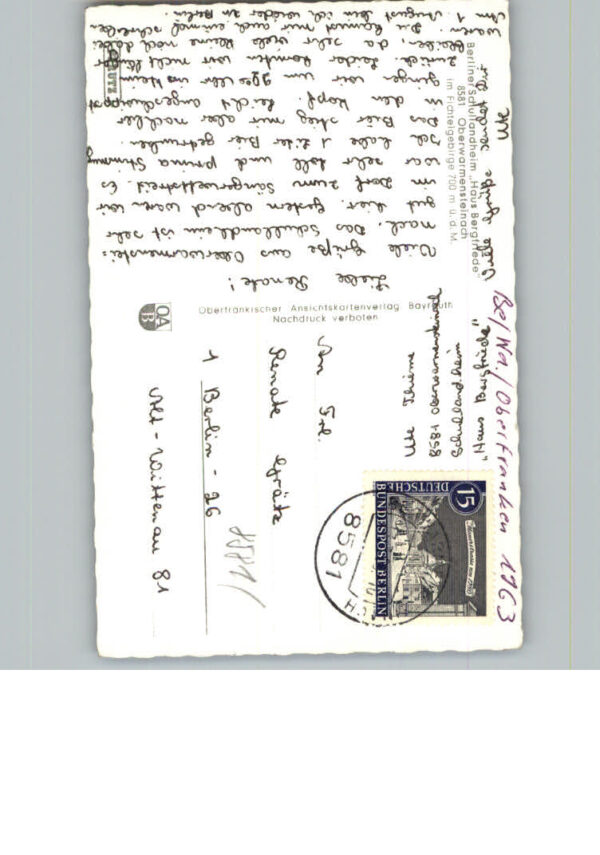 Berliner Schullandheim „Haus Bergfriede"
8581 Oberwarmensteinach
im Fichtelgebirge 700 m ü. d. M.
Liebe Renate!
Viele Grüße aus Oberwarmenstei=
nach. Das Schullandheim ist sehr
gut hier. Gestern abend waren wir
im Dorf zum Sängerwettstreit. Es
war sehr toll und prima Stimmung
Ich habe 1 Liter Bier getrunken.
Das Bier stieg mir aber nachher
in den Kopf. Recht angeschwipst
gingen wir um
zurück. Leider konnten
da sehr viele kleine noch dabei
waren. Du kannst mir auch einmal schreiben
Am 1. August bin ich wieder in Berlin.
Viele Grüße
sendet Dir
Ute
SCHUTZ
Oberfränkischer Ansichtskartenverlag Bayreuth
Nachdruck verboten
OA
B
Ute Thieme
8581 Oberwarmensteinach
Schullandheim
"Haus Bergfriede"
15
DEUTSCHE
BUNDESPOST BERLIN
8581
Renate
1 Berlin - 26
Alt-Wittenau 81
8581/
Be/Wa./Oberfranken 1963